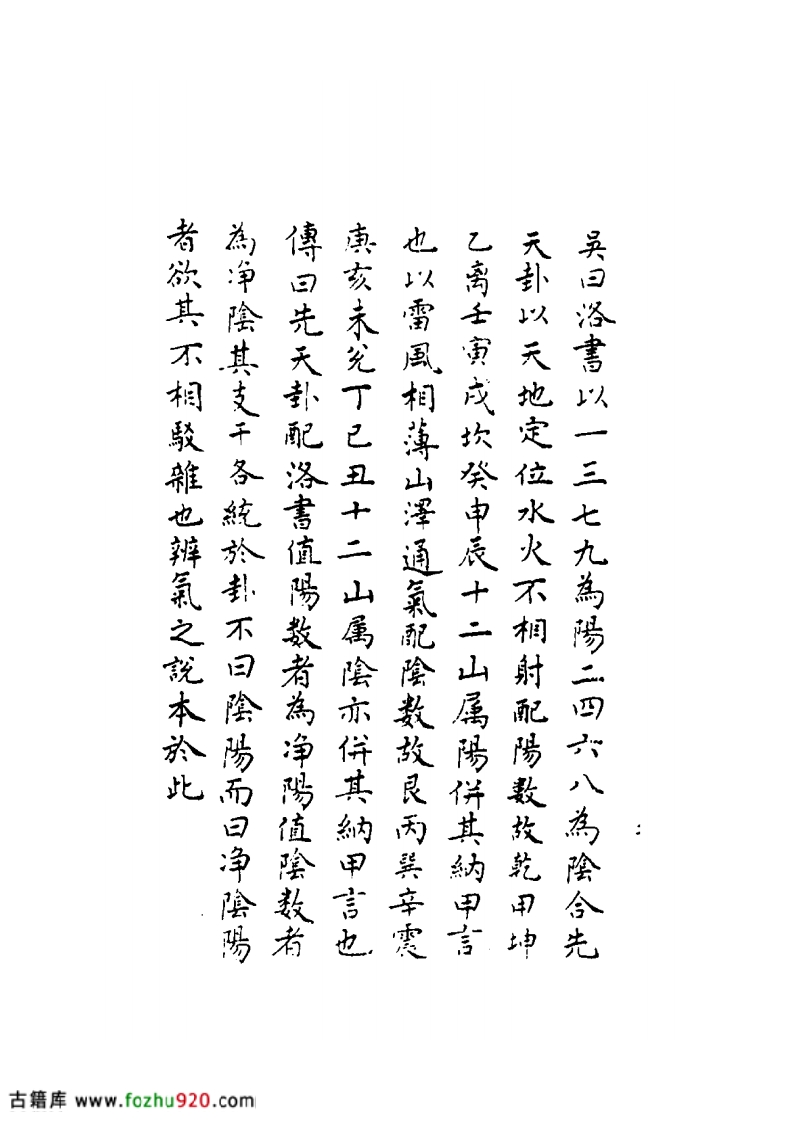 吳曰洛書以一三七九為陽二四六八為陰合先
天卦以天地定位水火不相射配陽數故乾甲坤
乙离壬寅戌坎癸申辰十二山属陽併其納甲言
也以雷風相薄山澤通氣配陰數故艮丙巽辛震
庚亥未兌丁巳丑十二山属陰亦併其納甲言也
傳曰先天卦配洛書值陽数者為净陽值陰数者
為净陰其支干各統於卦不曰陰陽而曰净陰陽
者欲其不相駁雜也辨氣之說本於此
古籍库 www.fozhu920.com